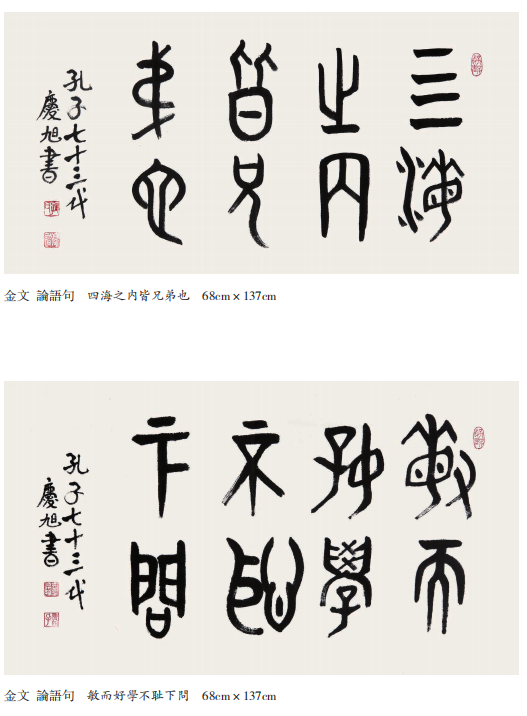 亖海
之内
皆兄
弟也
孔子七十三代
慶旭書
金文 論語句 四海之内皆兄弟也 68cm × 137cm
敏而
好學
不耻
下問
孔子七十三代
慶旭書
金文 論語句 敏而好學不耻下問 68cm × 137cm